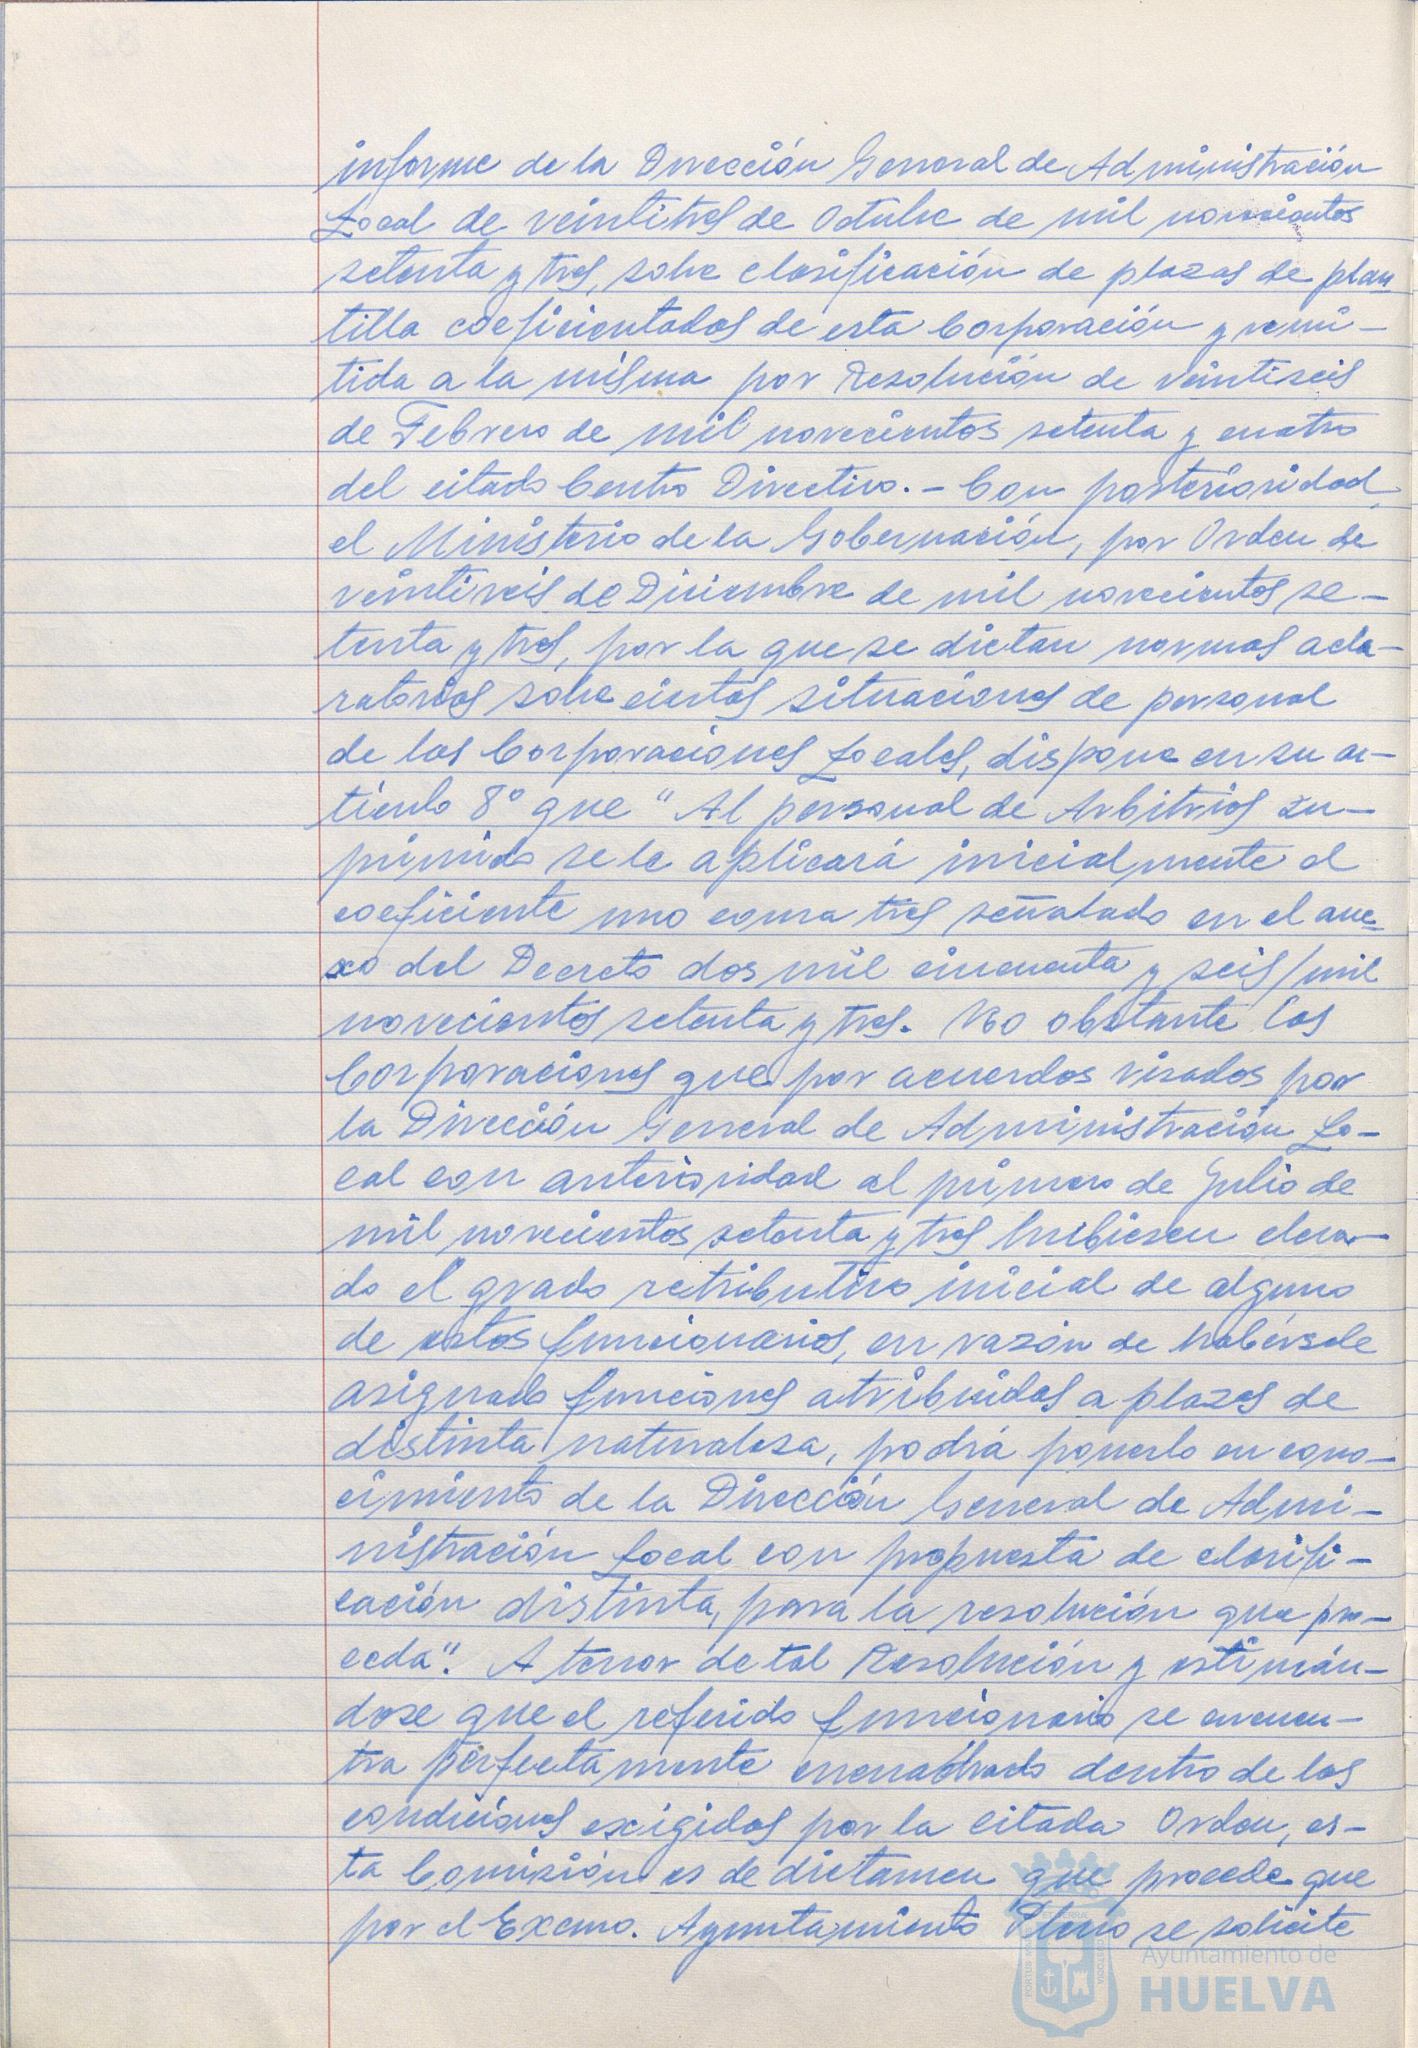 informe de la Dirección General de Administración
Local de veintitres de Octubre de mil novecientos
setenta y tres, sobre clasificación de plazas de plan
tilla coeficientados de esta Corporación y remi-
tida a la misma por Resolución de veintiseis
de Febrero de mil novecientos setenta y cuatro
del citado Centro Directivo.- Con posterioridad,
el Ministerio de la Gobernación, por Orden de
veintiseis de Diciembre de mil novecientos se-
tenta y tres, por la que se dictan normas acla-
ratorias sobre ciertas situaciones de personal
de las Corporaciones Locales, dispone en su ar-
ticulo 8º que "Al personal de Arbitrios su-
primido se le aplicará inicialmente el
coeficiente uno coma tres señalado en el ane-
xo del Decreto dos mil cincuenta y seis/mil
novecientos setenta y tres. No obstante las
Corporaciones que por acuerdos visados por
la Dirección General de Administración Lo-
cal con anterioridad al primero de Julio de
mil novecientos setenta y tres hubiesen eleva-
do el grado retributivo inicial de alguno
de estos funcionarios, en razón de habérsele
asignado funciones atribuidas a plazas de
distinta naturaleza, podrá ponerlo en cono-
cimiento de la Dirección General de Admi-
nistración Local con propuesta de clasifi-
cación distinta, para la resolución que pro-
ceda". A tenor de tal Resolución y estimán-
dose que el referido funcionario se encuen-
tra perfectamente encuadrado dentro de las
condiciones exigidas por la citada Orden, es-
ta Comisión es de dictamen que procede que
por el Excmo. Ayuntamiento Pleno se solicite
Ayuntamiento de
HUELVA